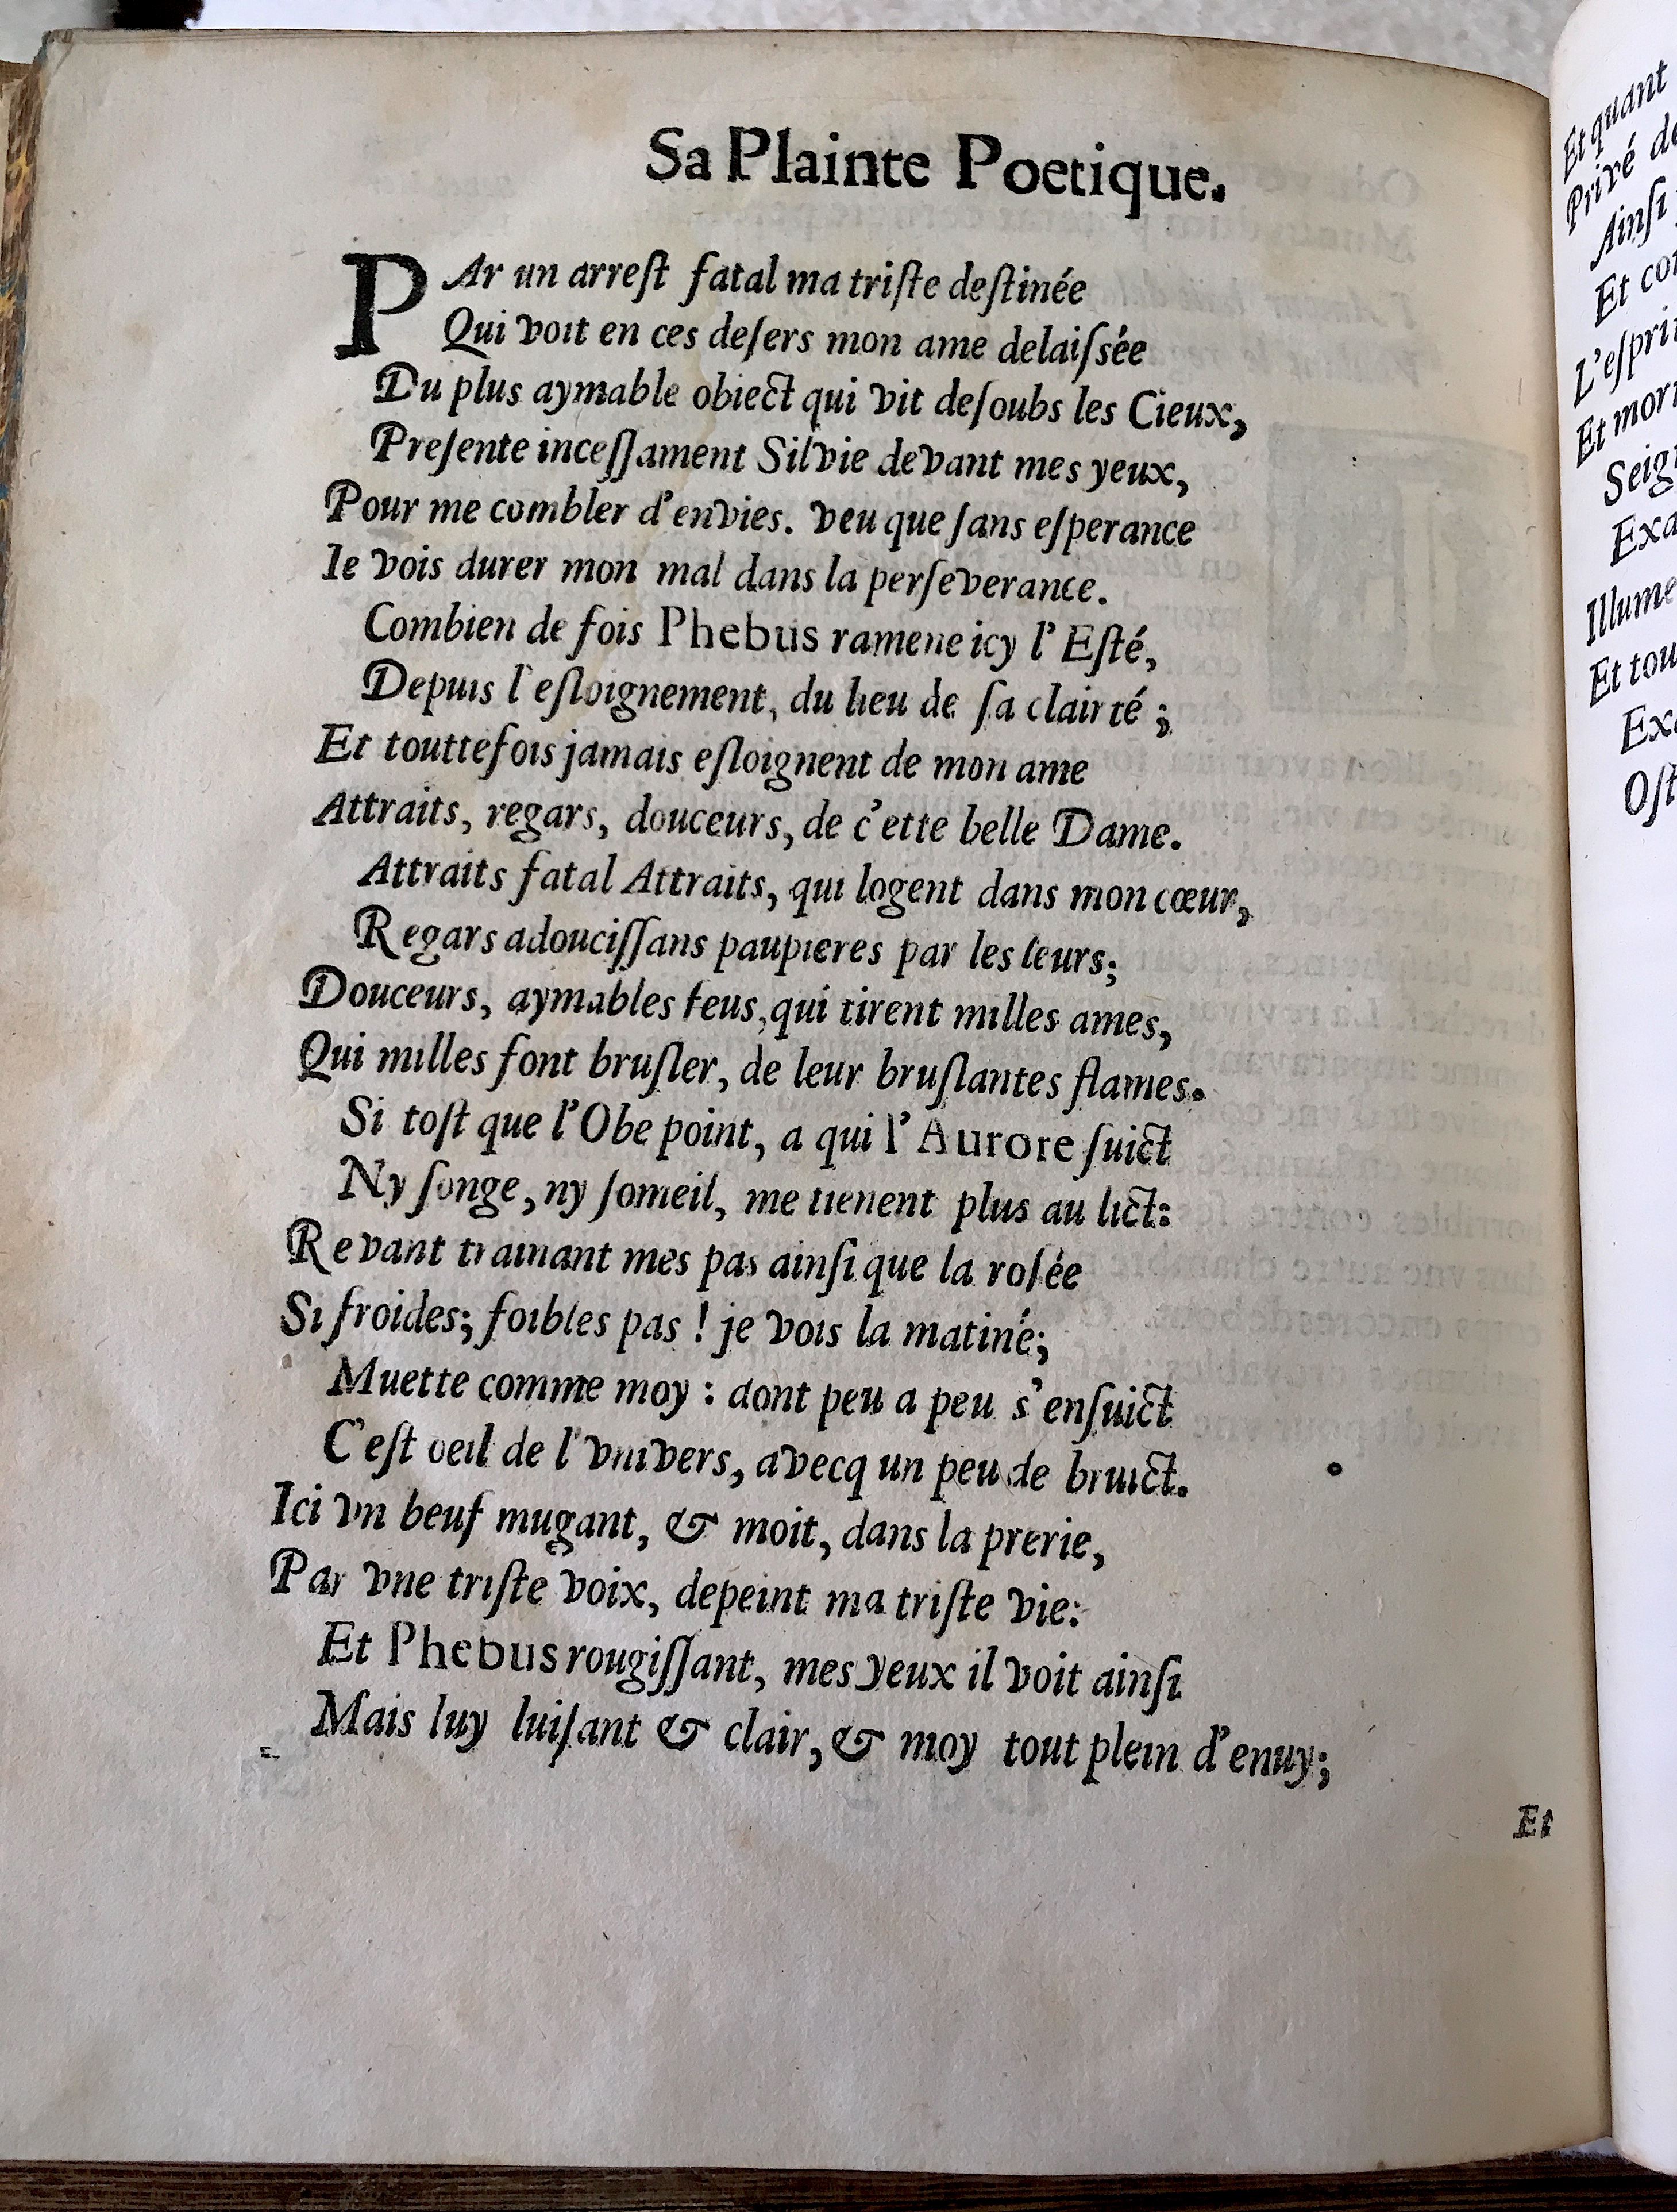 Sa Plainte Poetique.
PAr un arreſt fatal ma triſte deſtinée
Qui voit en ces deſers mon ame delaiſsée
Du plus aymable obiect qui vit deſoubs les Cieux,
Preſente inceſſament Silvie devant mes yeux,
Pour me combler d'envies. veu que ſans eſperance
Ie vois durer mon mal dans la perſeverance.
Combien de fois Phebus ramene icy l'Eſté,
Depuis l'eſloignement, du lieu de ſa clairté;
Et touttefois jamais eſloignent de mon ame
Attraits, regars, douceurs, de c'ette belle Dame.
Attraits fatal Attraits, qui logent dans mon cœur,
Regars adouciſſans paupieres par les leurs;
Douceurs, aymables feus, qui tirent milles ames,
Qui milles font bruſler, de leur bruſlantes flames.
Si toſt que l'Obe point, a qui l'Aurore ſuict
Ny ſonge, ny ſomeil, me tienent plus au lict:
Revant trainant mes pas ainſi que la roſée
Si froides; foibles pas! je vois la matiné;
Muette comme moy: dont peu a peu s'enſuict
C'eſt oeil de l'vnivers, avecq un peu de bruict.
Ici vn beuf mugant, & moit, dans la prerie,
Par vne triſte voix, depeint ma triſte vie:
Et Phebus rougiſſant, mes yeux il voit ainſi
Mais luy luiſant & clair, & moy tout plein d'enuy;
Et
Et quant
Privé de
Ainſi
Et
L'eſprit
Et
Illume
Et